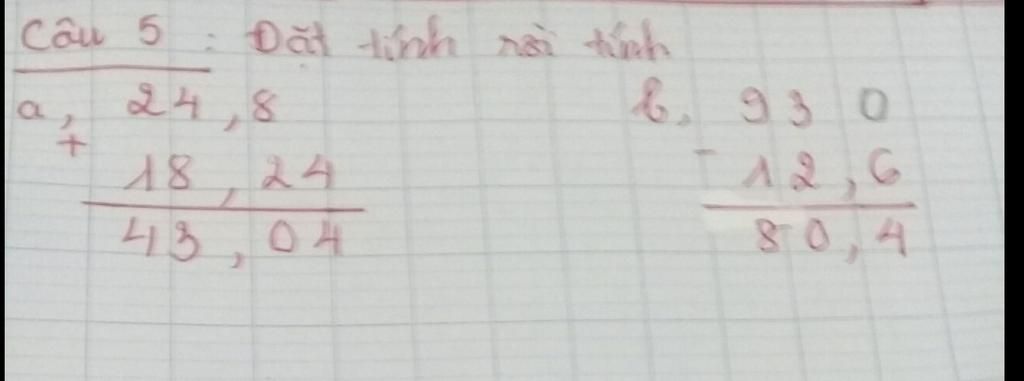 Câu 5 : Đặt tính rồi tính
a, 24,8 b, 93 0
+ -
18,24 12,6
43,04 80,4